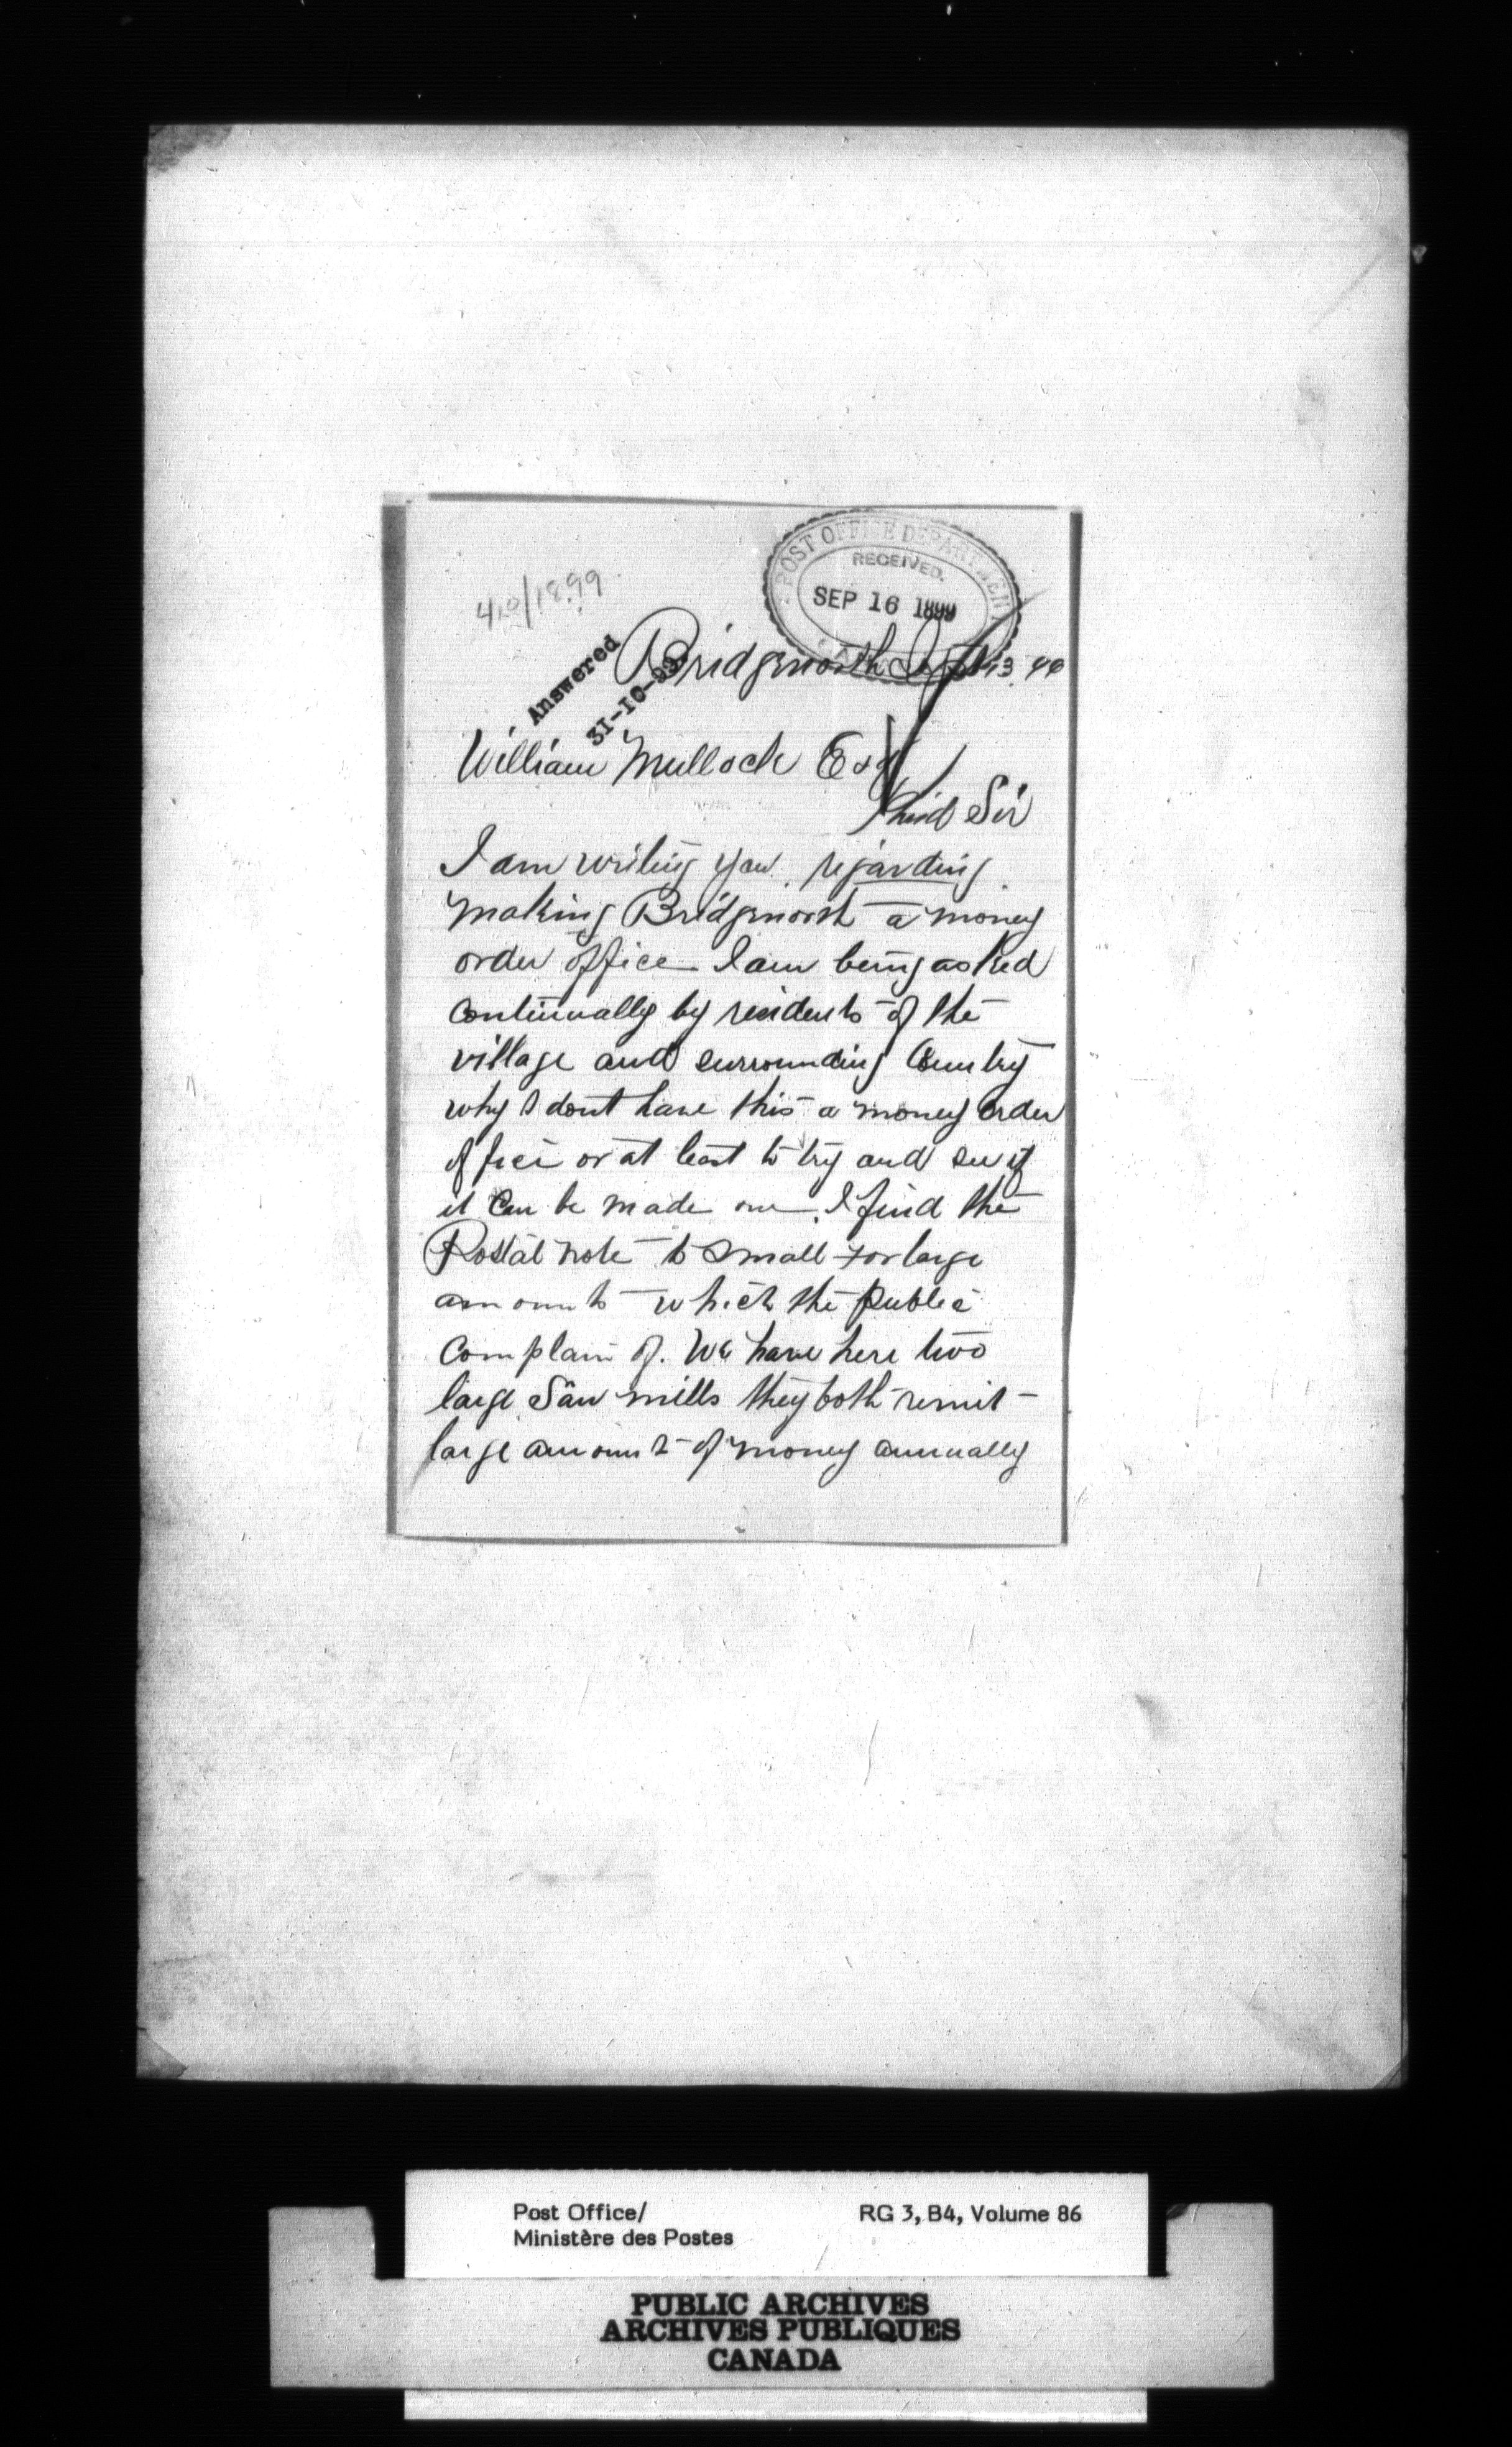 POST OFFICE DEPARTMENT
RECEIVED.
SEP 16 1899
410/1899
Answered
31-10-99
Bridgenorth Sept 13 99
William Mullock Esq
Kind Sir
I am writing you regarding
making Bridgenorth a money
order office I am being asked
continually by residents of the
village and surrounding Country
why I dont have this a money order
office or at least to try and see if
it can be made one. I find the
Postal note to small for large
amounts which the public
Complain of. We have here two
large Saw mills they both remit
large amounts of money annually
Post Office/
Ministère des Postes
RG 3, B4, Volume 86
PUBLIC ARCHIVES
ARCHIVES PUBLIQUES
CANADA